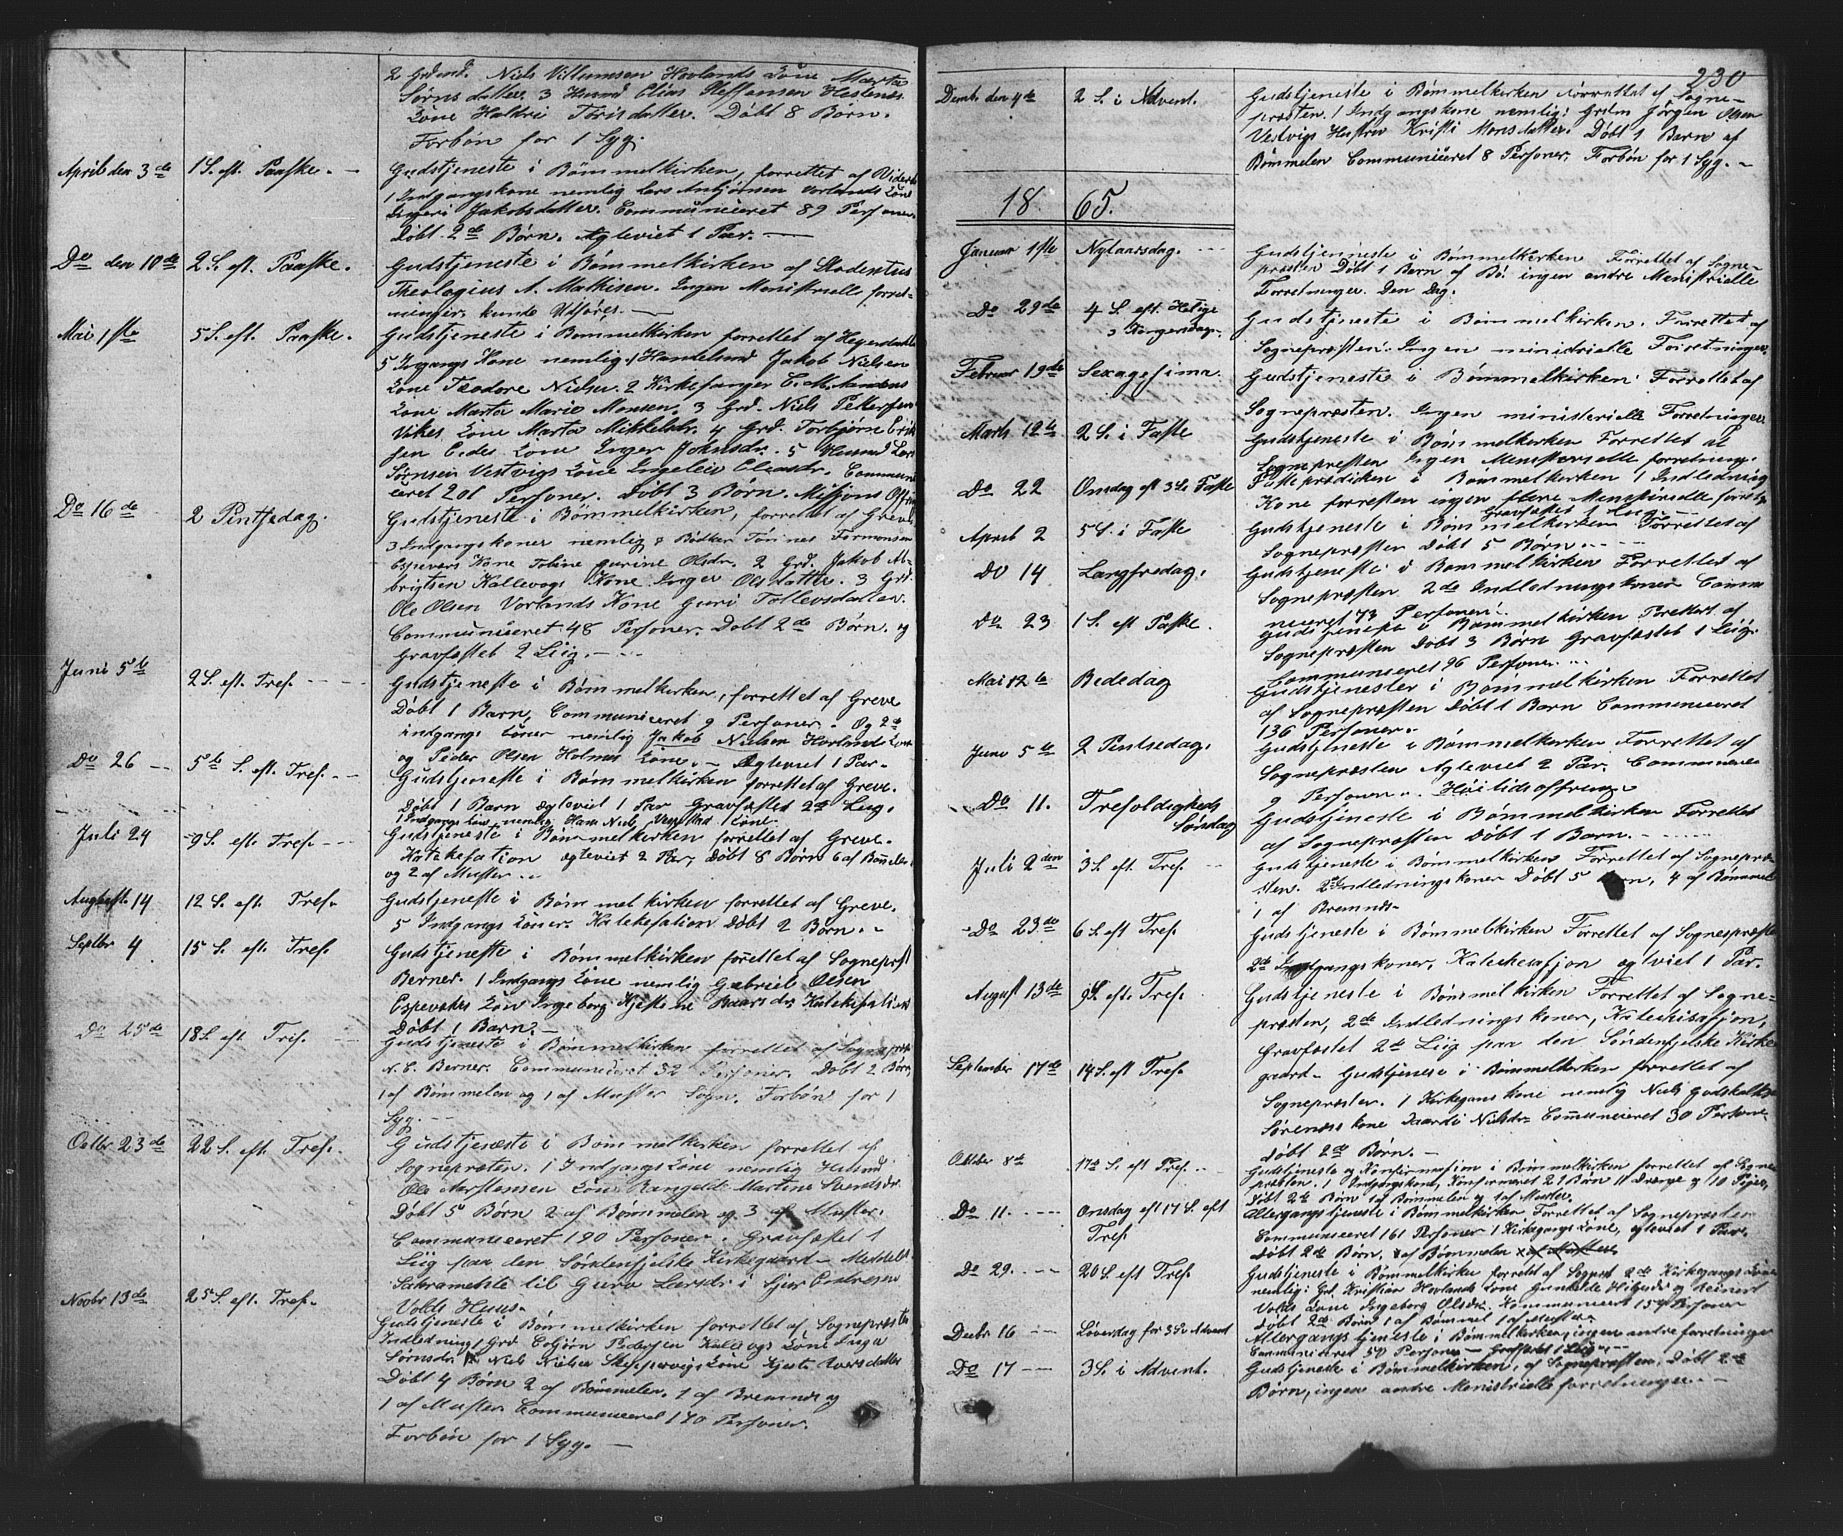 2 Grdmd. Niels Villumsen Hovlands Kone Marta
Sørnsdatter, 3 Husmd Elias Steffensen Hestenes
Kone Haldri Torisdatter. Døbt 8 Børn.
Forbøn for 1 Syg.
April den 3de 1 S. eft. Paaske. — Gudstjeneste i Bømmelkirken, forrettet af
1 Indgangskone nemlig Lars Vorlands Kone
Jakobsdatter. Communiceret 89 Personer
Døbt 2de Børn. Ægteviet 1 Par. —
Do den 10de 2 S. eft. Paaske. Gudstjeneste i Bømmelkirken af Studentus
Theologius A. Mathisen. Ingen Menistrielle forret-
ninger kunde Udføres. —
Mai 1ste 5 S. eft. Paaske. Gudstjeneste i Bømmelkirken forrettet af
5 Indgangs Kone nemlig 1 Handelsmd Jakob Nielsen
Kone Teodore Nielsen. 2 Kirkesanger C. M.
Kone Marta Marie Monsen, 3 Grd. Niels Pettersen
Vikes Kone Marta Mikkelsdr. 4 Grd. Torbjørn Erik-
sen Eides Kone Inger Johnsdr. 5 Husmd Lars
Sørnsen Vestvigs Kone Engelen Eliasdr. Communi-
ceret 201 Personer. Døbt 3 Børn. Missions Offring
Do 16de 2 Pintsedag. Gudstjeneste i Bømmelkirken, forrettet af Greve,
3 Indgangskoner nemlig 1 Bødker Tørines Tormonsen
Espevers Kone Tobine Gurine Olsdr. 2 Grd. Jakob Al-
brigtsen Kallevogs Kone Inger Olsdatter. 3 Grd.
Ole Olsen Vorlands Kone Guri Tollevsdatter.
Communiceret 48 Personer. Døbt 2de Børn. og
Gravfæstet 2 Liig. — —
Juni 5te 2 S. eft. Tref. — — — Gudstjeneste i Bømmelkirken, forrettet af Greve
Døbt 1 Barn, Communiceret 9 Personer. Og 2de
indgangs Koner nemlig Jakob Nielsen Hovlands Kone
og Peder Olsen Holmes Kone. — Ægteviet 1 Par —
Do 26 — — 5te S. eft. Tref. — — Gudstjeneste i Bømmelkirken forrettet af Greve.
Døbt 1 Barn ægteviet 1 Par Gravfæstet 2de Liig.
1 Indgangs Kone nemlig Hans Niels Kone.
Juli 24 9 S. eft. Tref. — — — Gudstjeneste i Bømmelkirken forrettet af Greve.
Katekesation ægteviet 2 Par, Døbt 8 Børn 6 af Bømelen
og 2 af Muster. —
August 14 12 S. eft. Tref. Gudstjeneste i Bømmelkirken forrettet af Greve.
5 Indgangs Koner. Katekesation Døbt 2 Børn. —
Septbr 4 15 S. eft. Tref. Gudstjeneste i Bømmelkirken forrettet af Sogneprest
Berner. 1 Indgangs Kone nemlig Gabriel Olsen
Espeværes Kone Ingeborg Baarsdr Katekesation
Døbt 1 Barn. —
Do 25de 18 S. eft Tref. — Gudstjeneste i Bømmelkirken forrettet af Sogneprest
N. S. Berner. Communiceret 32 Personer. Døbt 2 Børn,
1 af Bømmelen og 1 af Muster Sogn. Forbøn for 1
Syg. — —
Octbr 23de 22 S. eft. Tref. Gudstjeneste i Bømmelkirken forrettet af
Sognepræsten. 1 Indgangs Kone nemlig Husmd
Ole Aarstensen Kone Rangelde Martine Svendsdr
Døbt 5 Børn 2 af Bømmelen og 3 af Muster.
Communiceret 190 Personer. Gravfæstet 1
Liig paa den Søndenfjelske Kirkegaard — Meddelt
Sakramentet til Guro Larsdr i Sjur Endresen
Volds Huus. —
Novbr 13de 25 S. eft. Tref. Gudstjeneste i Bømmelkirken forrettet af Sognepræsten
Indledning 1 Grd Pedersen Kallevogs Kone Inga
Sørnsdr Niels Nielsen Skeppervigs Kone Gjerte Ivarsdatter
Døbt 4 Børn 2 af Bømmelen, 1 af Bremnes og
1 af Muster Communiceret 170 Personer.
Forbøn for 1 Syg. —
230
Decmb. den 4de 2 S. i Advent. Gudstjeneste i Bømmelkirken forrettet af Sogne-
præsten. 1 Indgangskone nemlig: Grdm Jørgen Olsen
Vestvigs Hustru Kristi Monsdatter. Døbt 1 Barn af
Bømmelen Communiceret 8 Personer. Forbøn for 1 Syg. —
18 65.
Januar 1ste Nytaarsdag. — — Gudstjeneste i Bømmelkirken Forrettet af Sogne-
præsten Døbt 1 Barn af Bø. ingen andre Menistrielle
Forretninger. Den Dag.
Do 29de 4 S. eft. Helige 3 Kongersdag. Gudstjeneste i Bømmelkirken. Forrettet af
Sognepræsten. Ingen minidrielle Forretninger.
Februar 19de Sexagesima. Gudstjeneste i Bømmelkirken. Forrettet af
Sognepræsten. Ingen ministerielle Forretninger
Marts 12te 2 S. i Faste Gudstjeneste i Bømmelkirken Forrettet af
Sognepresten Ingen Menistrielle forretning.
Do 22 Onsdag eft 3 S. Faste Fasteprædiken i Bømmelkirken 1 Indlednings
Kone forresten ingen flere Menistrielle forretn.
Gravfæstet 1 Liig —
April 2 5 S. i Faste Gudstjeneste i Bømmelkirken Forrettet af
Sognepræsten Døbt 5 Børn. — — —
Do 14 Langfredag. Gudstjeneste i Bømmelkirken Forrettet af
Sognepræsten. 2de Indledningskoner Commu-
niceret 73 Personer.
Do 23 1 S. eft Paske. Gudstjeneste i Bømmelkirken Forrettet af
Sognepræsten Døbt 3 Børn Gravfæstet 1 Liig.
Communiceret 96 Personer.
Mai 12te Bededag Gudstjenester i Bømmelkirken Forrettet
af Sognepræsten Døbt 1 Barn Communiceret
136 Personer. —
Juni 5te 2 Pentsedag. Gudstjeneste i Bømmelkirken Forrettet af
Sognepræsten Ægteviet 2 Par. Communiceret
9 Personer. Høitidsoffring —
Do 11. Trefoldigheds Søndag Gudstjeneste i Bømmelkirken Forrettet
af Sognepræsten Døbt 1 Barn. — — —
Juli 2den 3 S. eft Tref. — Gudstjeneste i Bømmelkirken Forrettet af Sognepræ-
sten. 2de Indledningskoner Døbt 5 Børn, 4 af Bømmel
1 af Bremnes —
Do 23de 6 S. eft Tref. Gudstjeneste i Bømmelkirken Forrettet af Sognepræsten
2de Indgangskoner, Katekesasjon ægtviet 1 Par.
August 13de 9 S. eft. Tref. Gudstjeneste i Bømmelkirken Forrettet af Sogne-
præsten, 2de Indlednings koner, Katekisasjon,
Gravfæstet 2de Liig paa den Søndenfjelske Kirke
September 17de 14 S. eft Tref. gaard — Gudstjenese i Bømmelkirken forrettet af
Sognepræsten. 1 Kirkegangs kone nemlig Niels Godskalksen
Sørenes kone Taardi Nielsdr Communiceret 30 Personer
Døbt 2de Børn. —
Oktober 8de 17de S. eft Tref. — — Gudstjeneste og Konfirmasjon i Bømmelkirken forrettet af Sogne-
præsten. 1 Indgangskone, Konfirmeret 21 Børn 11 Drenge og 10 Piger,
Døbt 2de Børn 1 af Bømmelen og 1 af Muster.
Do 11. — — — Onsdag eft 17 S. eft Tref. Altergangstjeneste i Bømmelkirken Forrettet af Sognepræsten
Communiceret 161 Personer 1 Kirkegangs Kone, ægteviet 1 Par.
Døbt 2de Børn, af Bømmelen
Do 29. — — 20 S. eft Tref. Gudstjeneste i Bømmelkirken forrettet af Sognprst 2de Kirkegangs Kone
nemlig: Grd Kristian Hovlands Kone Gunnilde og Reinert
Volds Kone Ingeborg Olsdr. Kommuniceret 154 Personer
Døbt 2de Børn 1 af Bømmel 1 af Muster
Decbr 16 — — Løverdag for 3 S. Advent Altergangstjeneste i Bømmelkirken, ingen andre forretninger
Communiceret 50 Personer — Gravfæstet 1 Liig. — —
Do 17 — — 3 S. i Advent. Gudstjeneste i Bømmelkirken, af Sognepræsten, Døbt 2de
Børn, ingen andre Menistrielle forretninger. —